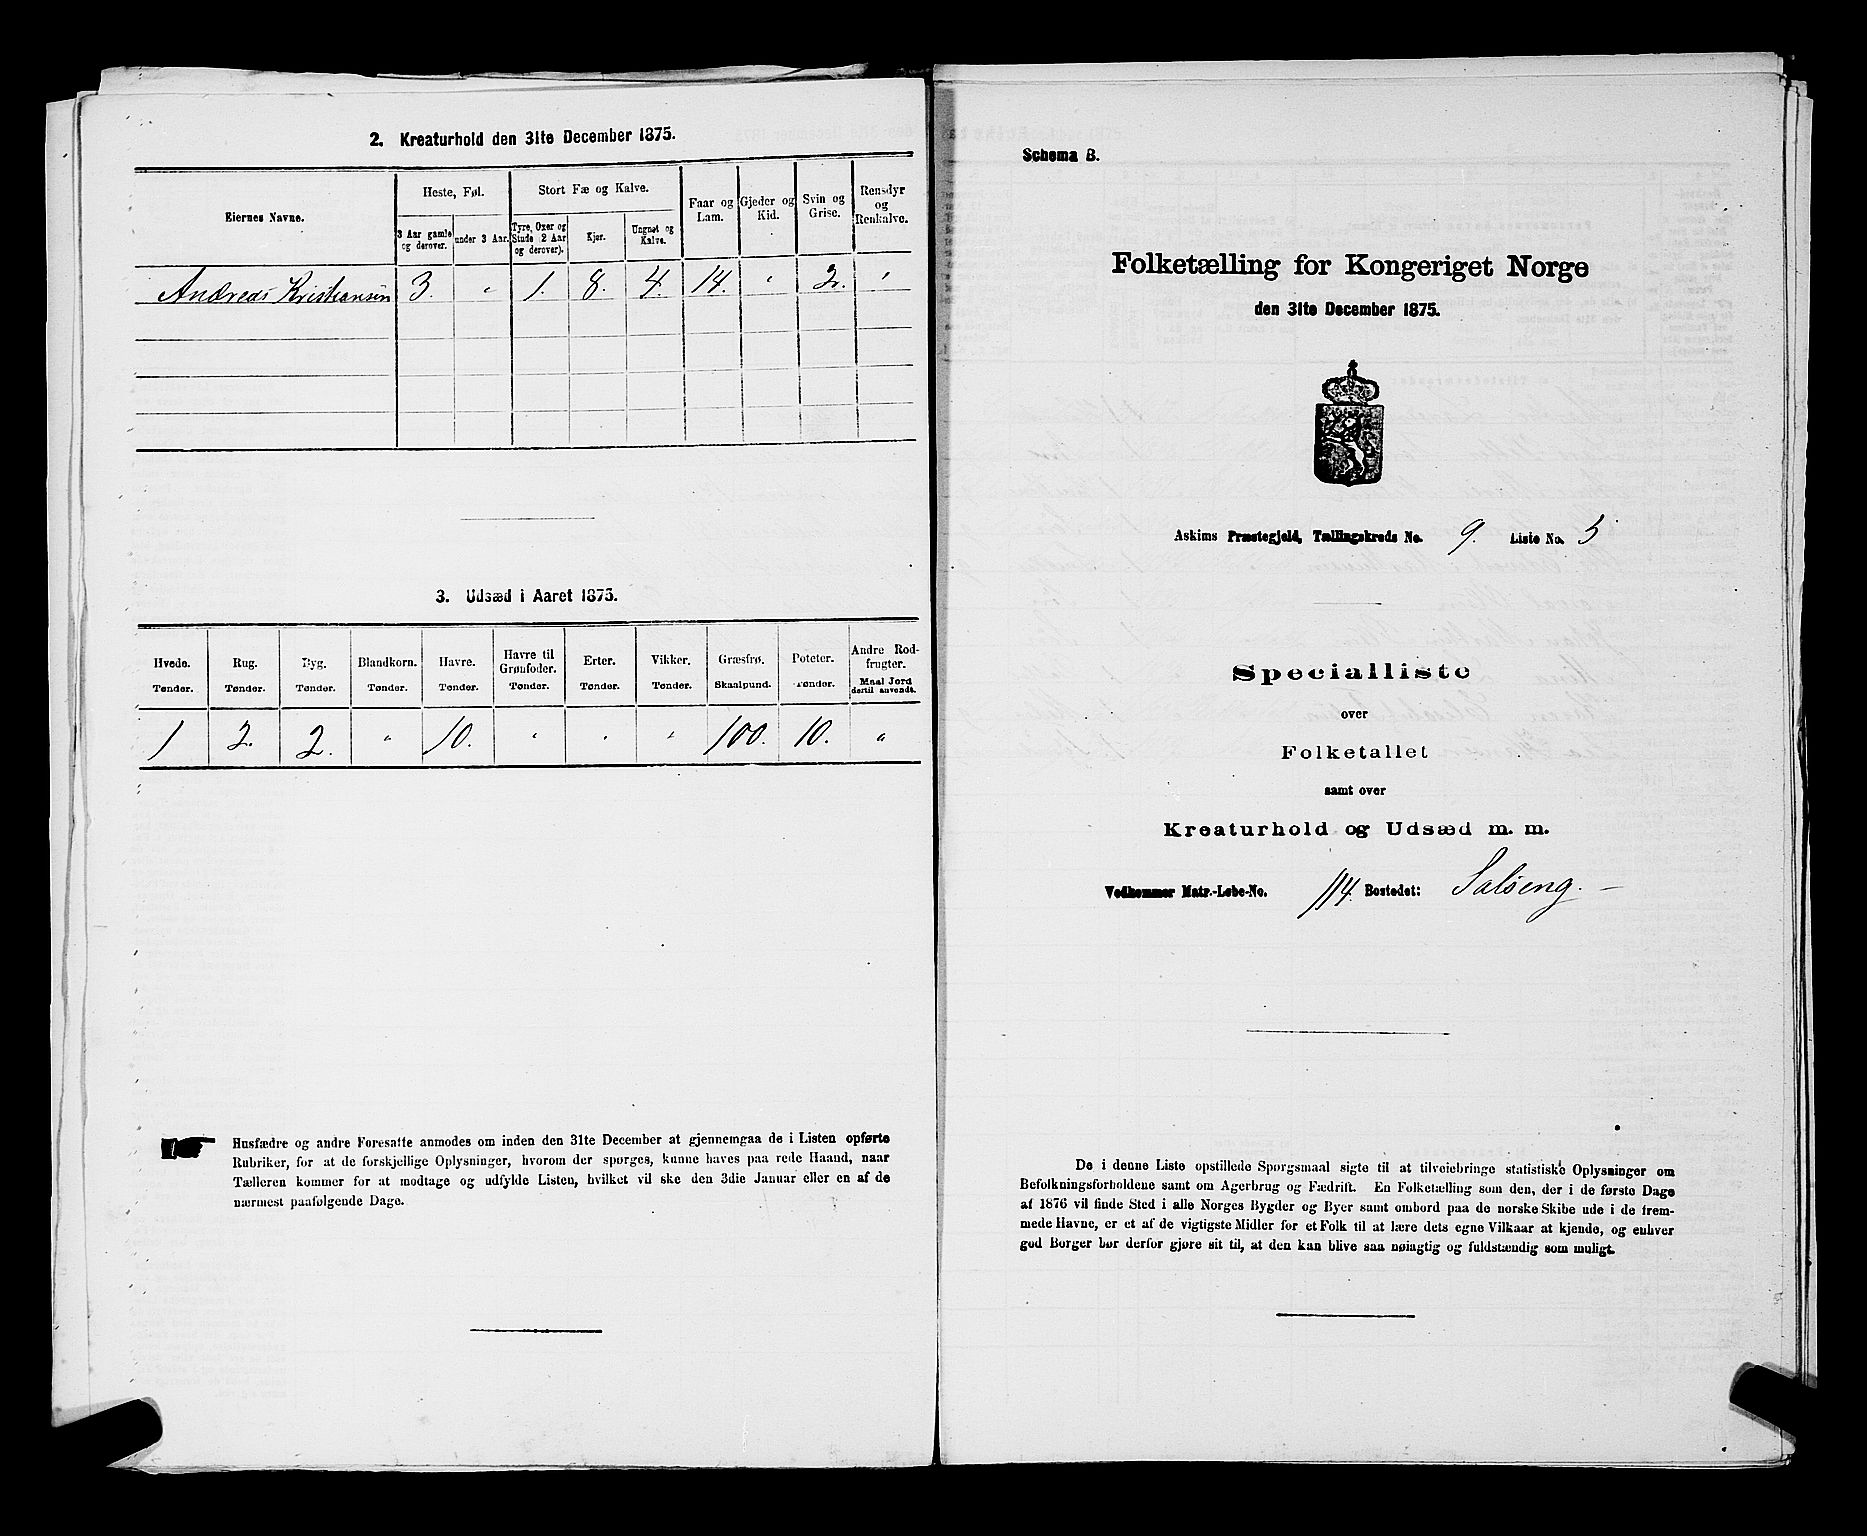 2. Kreaturhold den 31te December 1875.
Eiernes Navne.
Heste, Føl.
3 Aar gamle og derover.
under 3 Aar.
Stort Fæ og Kalve.
Tyre, Oxer og Stude (2 Aar og derover).
Kjør.
Ungnøt og Kalve.
Faar og Lam.
Gjeder og Kid.
Svin og Grise.
Rensdyr og Renkalve.
Andreas Kristiansen 3. " 1. 8. 4. 14. " 2. "
3. Udsæd i Aaret 1875.
Hvede. Rug. Byg. Blandkorn. Havre. Havre til Grønfoder. Erter. Vikker. Græsfrø. Poteter. Andre Rodfrugter.
Tønder. Tønder. Tønder. Tønder. Tønder. Tønder. Tønder. Tønder. Skaalpund. Tønder. Maal Jord dertil anvendt.
1 2. 2. " 10. " " " 100. 10. "
Husfædre og andre Foresatte anmodes om inden den 31te December at gjennemgaa de i Listen opførte
Rubriker, for at de forskjellige Oplysninger, hvorom der spørges, kunne haves paa rede Haand, naar
Tælleren kommer for at modtage og udfylde Listen, hvilket vil ske den 3die Januar eller en af de
nærmest paafølgende Dage.
Schema B.
Folketælling for Kongeriget Norge
den 31te December 1875.
Askims Præstegjeld, Tællingskreds No. 9. Liste No. 5
Specialliste
over
Folketallet
samt over
Kreaturhold og Udsæd m. m.
Vedkommer Matr.-Løbe-No. 114. Bostedet: Salseng. —
De i denne Liste opstillede Spørgsmaal sigte til at tilveiebringe statistiske Oplysninger om
Befolkningsforholdene samt om Agerbrug og Fædrift. En Folketælling som den, der i de første Dage
af 1876 vil finde Sted i alle Norges Bygder og Byer samt ombord paa de norske Skibe ude i de frem-
mede Havne, er et af de vigtigste Midler for et Folk til at lære dets egne Vilkaar at kjende, og enhver
god Borger bør derfor gjøre sit til, at den kan blive saa nøiagtig og fuldstændig som muligt.